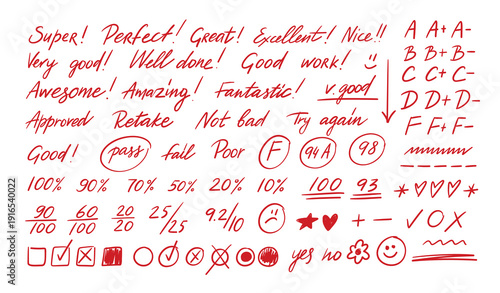 Super! Perfect! Great! Excellent! Nice!!
Very good! Well done! Good work!
Awesome! Amazing! Fantastic! v.good
Approved Retake Not bad Try again
Good! pass fail Poor F 94A 98
100% 90% 70% 50% 20% 10% 100 93
90/100 60/100 20/20 25/25 9.2/10
yes no
A A+ A-
B B+ B-
C C+ C-
D D+ D-
F F+ F-
Adobe Stock | #1916540022